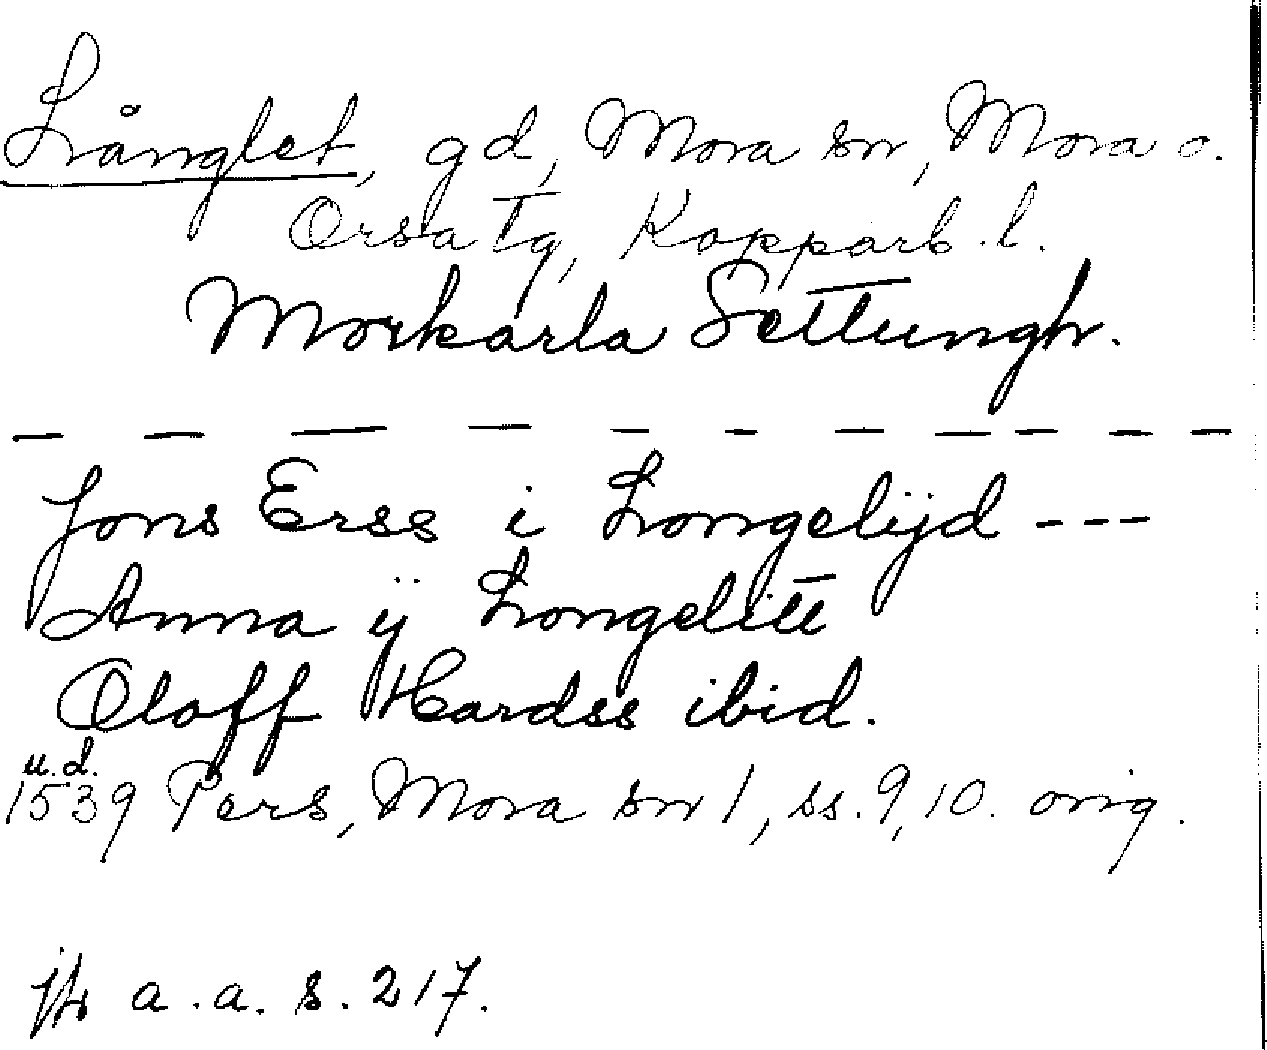 Långlet, gd, Mora sn, Mora o.
Orsa tg, Kopparb. l.
Morkarla Settungh.
— — — — — — — — — — —
Jons Erss i Longelijd ---
Anna ij Longelitt
Oloff Hardss ibid.
u.d.
1539 Pers, Mora sn 1, ss. 9, 10. orig.
jfr a.a. s. 217.